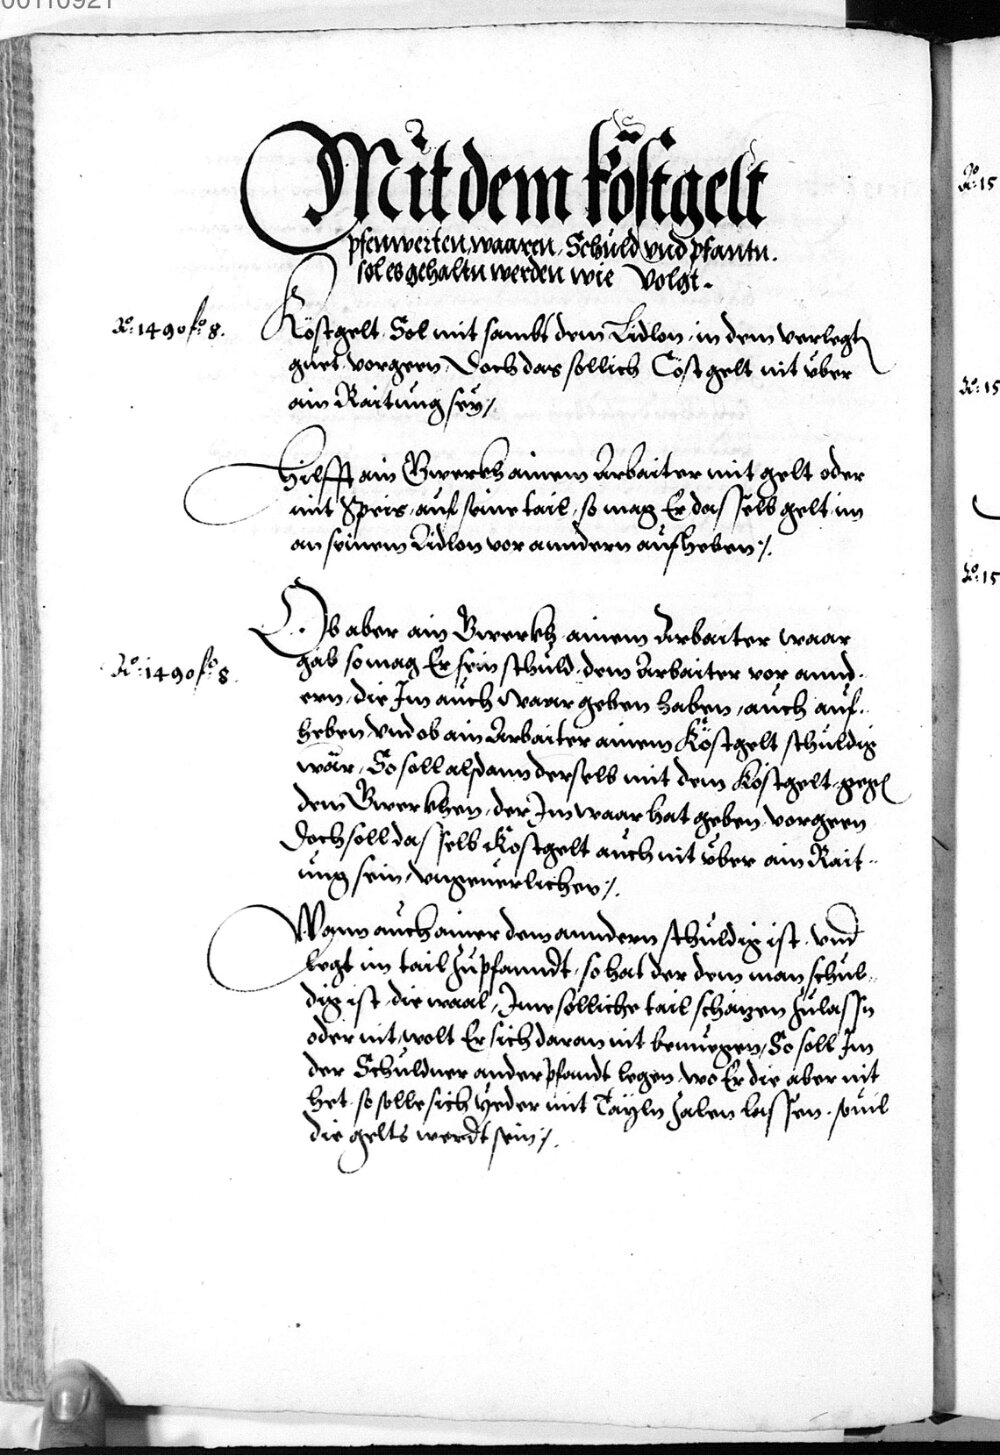 00110921
Mit dem köstgelt
pfenwerten, waaren, Schuld vnd pfantn.
sol es gehaltn werden wie volgt.
Ao: 1490 fo 8.
Köstgelt Sol mit sambt dem Lidlon in dem verlegtn
guet vorgeen, Doch das sollich Cöstgelt nit vber
ain Raitung sey /.
Hilfft ain Gwerkh ainem Arbaiter mit gelt oder
mit Speis, auf seine tail, so mag Er dasselb gelt im
an seinem Lidlon vor anndern aufheben /.
Ao: 1490 fo 8.
Ob aber ain Gwerkh ainem Arbaiter waar
gab so mag Er sein schuld dem Arbaiter vor annd-
ern, die Im auch waar geben haben, auch auf-
heben vnd ob ain Arbaiter ainem Köstgelt schuldig
wär, So soll alsdann derselb mit dem Köstgelt, gegen
dem Gwerkhen, der Im waar hat geben vorgeen
Doch soll dasselb Köstgelt auch nit vber ain Rait-
ung sein, vngeuerlichen /.
Wann auch ainer dem anndern schuldig ist, vnd
legt im tail zu pfanndt, so hat der dem man schul-
dig ist, die waal, Ime solliche tail schäzen zulassn
oder nit, wolt Er sich daran nit benuegen, So soll Im
der Schuldner ander pfandt legen, wo Er die aber nit
het, so solle sich yeder mit Tayln zalen lassen, souil
die gelts werdt sein /.
Ao: 15
Ao: 15
Ao: 15